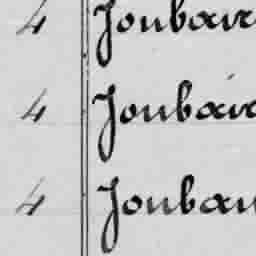 4 Joubair
4 Joubair
4 Jouban